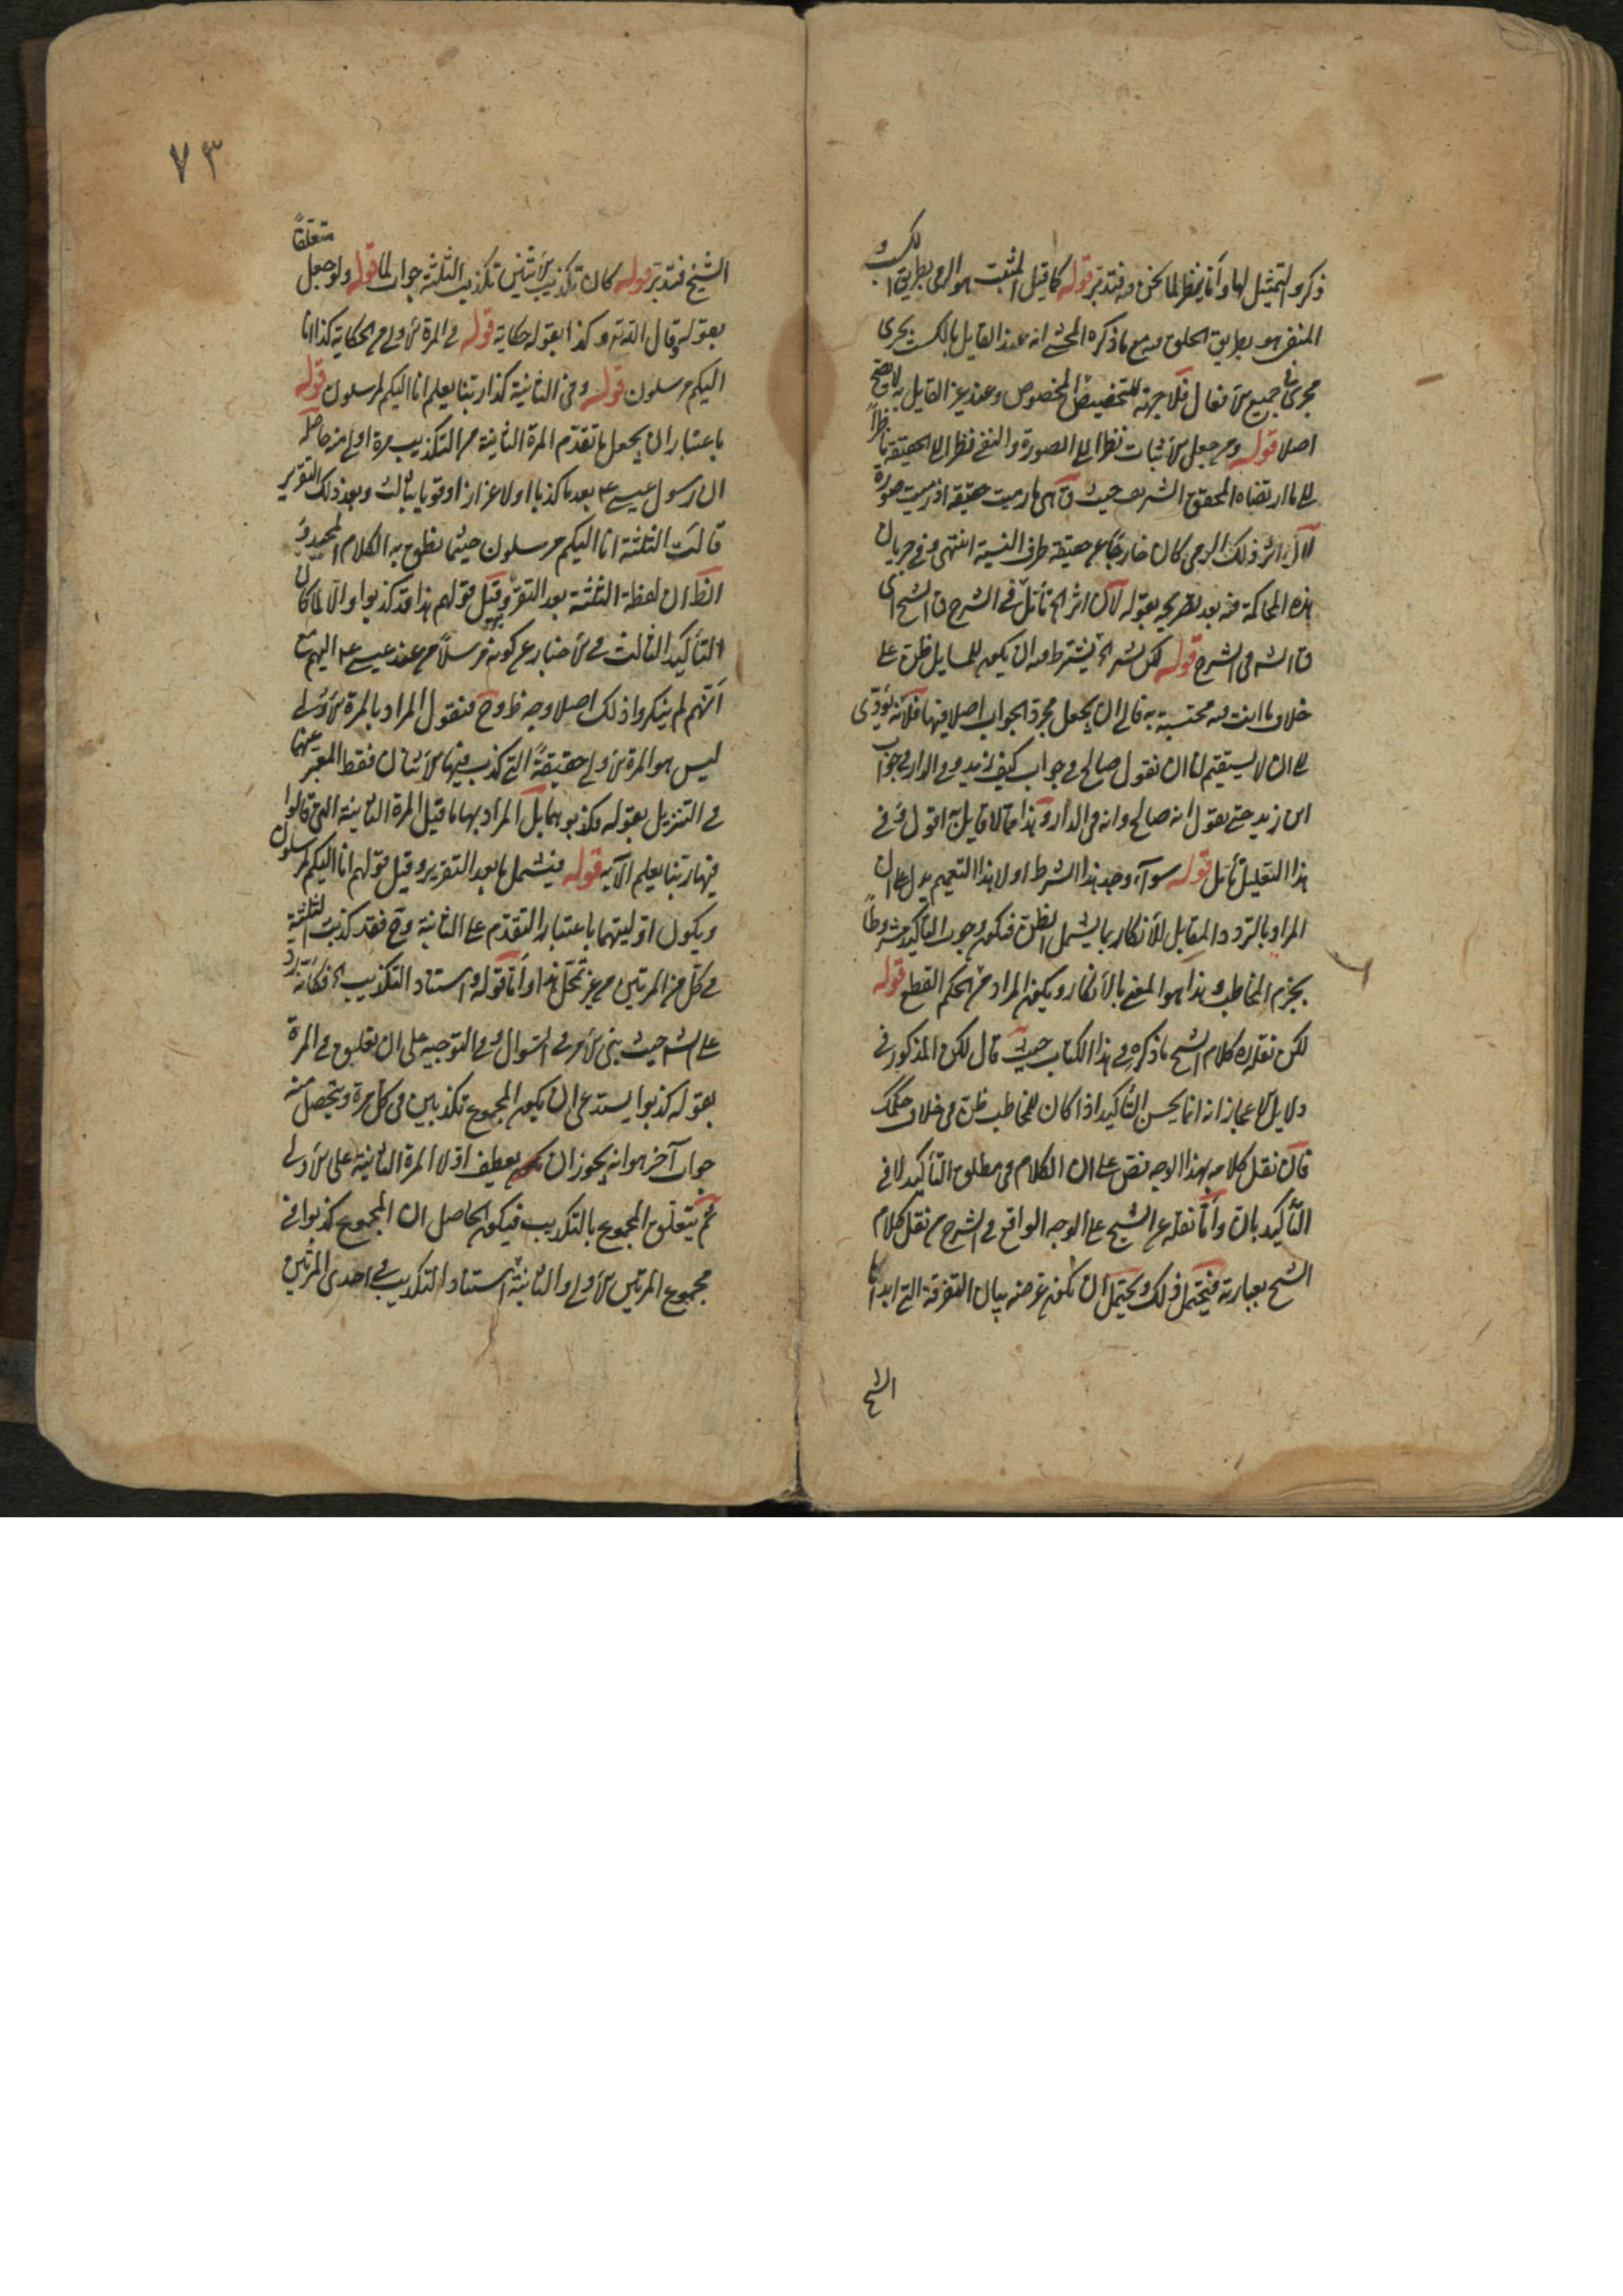 ذكروا التمثيل لها وأنا بنظر لما نحن فيه فتدبر قوله كما قيل المثبت هو الرمي بطريق الكسب و
المنفي هو بطريق الخلق فيه مع ما ذكره المحشي انه عند القايل بالكسب يجرى
مجرى في جميع الافعال فلا جهة للتخصيص المخصوص وعند غير القايل به لا يصح
اصلا قوله ومن جعل الاثبات نظرا الى الصورة والنفي نظرا الى الحقيقة ناظرا
الى ما ارتضاه المحقق الشريف حيث قال اى ما رميت حقيقة اذ رميت صورة
لان اثر ذلك الرمي كان خارجا عن حقيقة طرف النسبة انتهى وفي جريان
هذه المحاكمة فيه بعد تصريحه بقوله لان اثر الخ تأمل في الشرح قال الشيخ اى
قال الش في الشرح قوله لكن بشر الخ يشترط فيه ان يكون للسايل ظن على
خلاف ما انت فيه مجتنبه به فاما ان يجعل مجرد الجواب اصلا فيها فلا لانه يؤدى
الى ان لا يستقيم لنا ان نقول صالح في جواب كيف زيد وفي الدار في جواب
اين زيد حتى نقول انه صالح وانه في الدار وهذا مما لا قايل به اقول وفي
هذا التعليل تأمل قوله سواء وجد هذا الشرط او لا هذا التعميم يدل على ان
المراد بالتردد المقابل للانكار بما يشمل الظن فيكون وجوب التأكيد مشروطا
بجزم المخاطب وهذا هو المعنى بالانكار ويكون المراد من الحكم القطع قوله
لكن نقله كلام الشيخ ما ذكره في هذا الكتاب حيث قال لكن المذكور في
دلايل الاعجاز انه انما يحسن التأكيد اذا كان للمخاطب ظن في خلاف حكمك
فان نقل كلامه بهذا الوجه نص على ان الكلام في مطلق التأكيد لا في
التأكيد بان وأما نقله عن الشيخ على الوجه الواقع في الشرح من نقل كلام
الشيخ بعبارته فيحتمل ذلك ويحتمل ان يكون غرضه بيان التفرقة التي ابداها
الشيخ
٧٣
الشيخ فتدبر قوله كان تكذيب الاثنين تكذيب الثلثة جواب لما قوله ولو جعل متعلقا
بقوله وقال الله وكذا بقوله حكاية قوله في المرة الاولى من الحكاية كذا انا
اليكم مرسلون قوله وفي الثانية كذا ربنا يعلم انا اليكم لمرسلون قوله
باعتبار ان يجعل ما تقدم المرة الثانية من التكذيب مرة اولى منه حاصله
ان رسول عيسى ع بعد ما كذبا اولا عززا وقويا بثالث وبعد ذلك التقرير
قالت الثلثة انا اليكم مرسلون حيثما نطق به الكلام المجيد و
الظ ان لفظة الثلثة بعد التقرير وقبل قولهم هذا قد كذبوا والا لما كان
التأكيد الثالث في الاخبار عن كونه مرسلا من عند عيسى ع اليهم مع
انهم لم ينكروا ذلك اصلا وجه ظ وح فنقول المراد بالمرة الاولى
ليس هو المرة الاولى حقيقة التي كذب فيها الاثنان فقط المعبر عنها
في التنزيل بقوله فكذبوهما بل المراد بها ما قبل المرة الثانية التي قالوا
فيها ربنا يعلم الآية قوله فيشمل ما بعد التقرير وقبل قولهم انا اليكم لمرسلون
ويكون اوليتهما باعتبار التقدم على الثانية وح فقد كذبت الثلثة
في كل من المرتين من غير تمحل هذا وأما قوله واسناد التكذيب الخ فكأنه رد
على الش حيث بنى الامر في السؤال وفي التوجيه على ان تعليق في المرة
بقوله كذبوا يستدعى ان يكون المجموع تكذيبين في كل مرة ويتحصل منه
جواب آخر هو انه يجوز ان يعطف اولا المرة الثانية على الاولى
ثم يتعلق المجموع بالتكذيب فيكون الحاصل ان المجموع كذبوا في
مجموع المرتين الاولى والثانية اسناد التكذيب في احدى المرتين